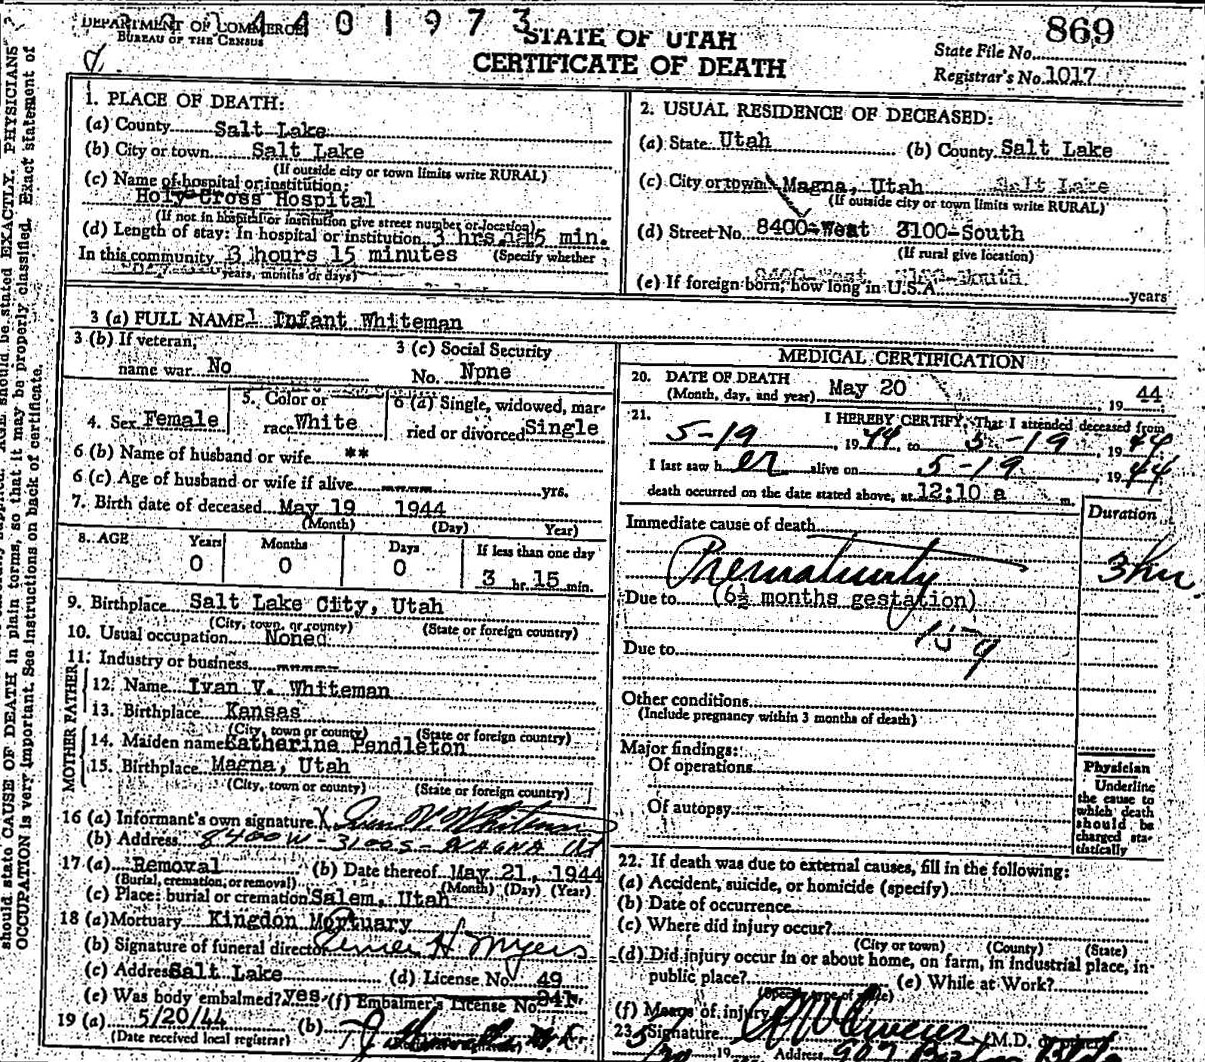 DEPARTMENT OF COMMERCE
BUREAU OF THE CENSUS
4 4 0 1 9 7 3
STATE OF UTAH
CERTIFICATE OF DEATH
869
State File No.
Registrar's No. 1017
1. PLACE OF DEATH:
(a) County Salt Lake
(b) City or town Salt Lake
(If outside city or town limits write RURAL)
(c) Name of hospital or institution:
Holy Cross Hospital
(If not in hospital or institution give street number or location)
(d) Length of stay: In hospital or institution 3 hrs. 15 min.
In this community 3 hours 15 minutes (Specify whether
years, months or days)
2. USUAL RESIDENCE OF DECEASED:
(a) State Utah (b) County Salt Lake
(c) City or town Magna, Utah Salt Lake
(If outside city or town limits write RURAL)
(d) Street No. 8400-West 3100-South
(If rural give location)
8400-West 3100-South
(e) If foreign born, how long in U.S.A. years
3 (a) FULL NAME Infant Whiteman
3 (b) If veteran, name war No
3 (c) Social Security No. Npne
4. Sex Female
5. Color or race White
6 (a) Single, widowed, married or divorced Single
6 (b) Name of husband or wife **
6 (c) Age of husband or wife if alive yrs.
7. Birth date of deceased May 19 1944
(Month) (Day) Year)
8. AGE Years Months Days If less than one day
0 0 0 3 hr. 15 min.
9. Birthplace Salt Lake City, Utah
(City, town, or county) (State or foreign country)
10. Usual occupation Noned
11. Industry or business
FATHER
12. Name Ivan V. Whiteman
13. Birthplace Kansas
(City, town or county) (State or foreign country)
MOTHER
14. Maiden name Katherine Pendleton
15. Birthplace Magna, Utah
(City, town or county) (State or foreign country)
16 (a) Informant's own signature X Ivan V. Whiteman
(b) Address 8400 W - 3100 S - MAGNA UT
17 (a) Removal (b) Date thereof May 21, 1944
(Burial, cremation, or removal) (Month) (Day) (Year)
(c) Place: burial or cremation Salem, Utah
18 (a) Mortuary Kingdon Mortuary
(b) Signature of funeral director H Myers
(c) Address Salt Lake (d) License No. 49
(e) Was body embalmed? yes (f) Embalmer's License No. 941
19 (a) 5/20/44 (b)
(Date received local registrar)
MEDICAL CERTIFICATION
20. DATE OF DEATH May 20, 1944
(Month, day, and year)
21. I HEREBY CERTIFY, That I attended deceased from
5-19, 1944, to 5-19, 1944
I last saw her alive on 5-19, 1944
death occurred on the date stated above, at 12:10 a m.
Duration
Immediate cause of death
Prematurity 3 hrs
Due to (6½ months gestation)
159
Due to
Other conditions
(Include pregnancy within 3 months of death)
Major findings:
Of operations
Of autopsy
Physician
Underline
the cause to
which death
should be
charged sta-
tistically
22. If death was due to external causes, fill in the following:
(a) Accident, suicide, or homicide (specify)
(b) Date of occurrence
(c) Where did injury occur?
(City or town) (County) (State)
(d) Did injury occur in or about home, on farm, in industrial place, in
public place? (e) While at Work?
(Specify type of place)
(f) Means of injury
23. Signature (M.D.
Address 907
should state CAUSE OF DEATH in plain terms, so that it may be properly classified. Exact statement of
OCCUPATION is very important. See instructions on back of certificate.
AGE should be stated EXACTLY. PHYSICIANS